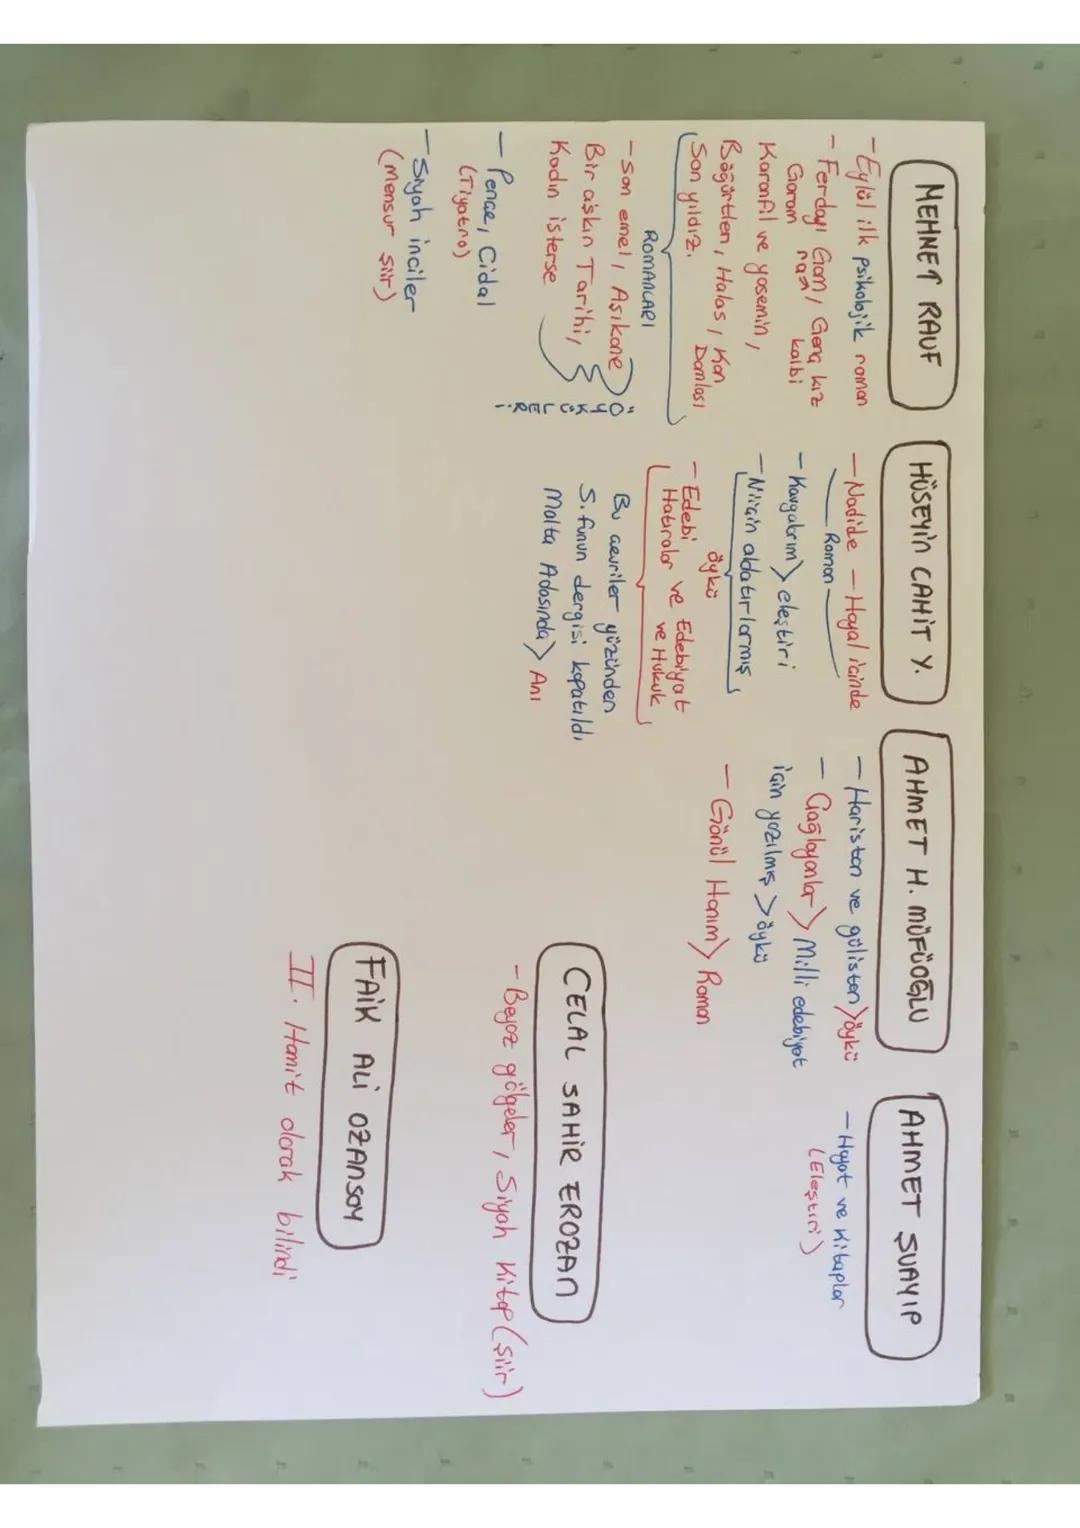 MEHMET RAUF
- Eylül ilk psikolojik roman
- Ferdayı Gam, Genç kız
Garam kalbi
Karanfil ve yasemin,
Böğürtlen, Halas, Kan
Son yıldız. Damlası
ROMANLARI
- Son emel, Aşıkane
Bir aşkın Tarihi,
Kadın isterse
ÖYKÜLER
- Pençe, Cidal
(Tiyatro)
- Siyah inciler
(Mensur şiir)
HÜSEYİN CAHİT Y.
- Nadide - Hayal içinde
Roman
- Kavgalarım > eleştiri
- Niçin aldatırlarmış
öykü
- Edebi Hatıralar ve Edebiyat
ve Hukuk
Bu çevriler yüzünden
S. fünun dergisi kapatıldı
Malta Adasında > Anı
AHMET H. MÜFÜOĞLU
- Haristan ve gülistan > öykü
- Çağlayanlar > Milli edebiyat
için yazılmış > öykü
- Gönül Hanım > Roman
AHMET ŞUAYIP
- Hayat ve Kitaplar
(Eleştiri)
CELAL SAHİR EROZAN
- Beyaz gölgeler, Siyah Kitap (şiir)
FAİK ALİ OZANSOY
II. Hamit olarak bilindi